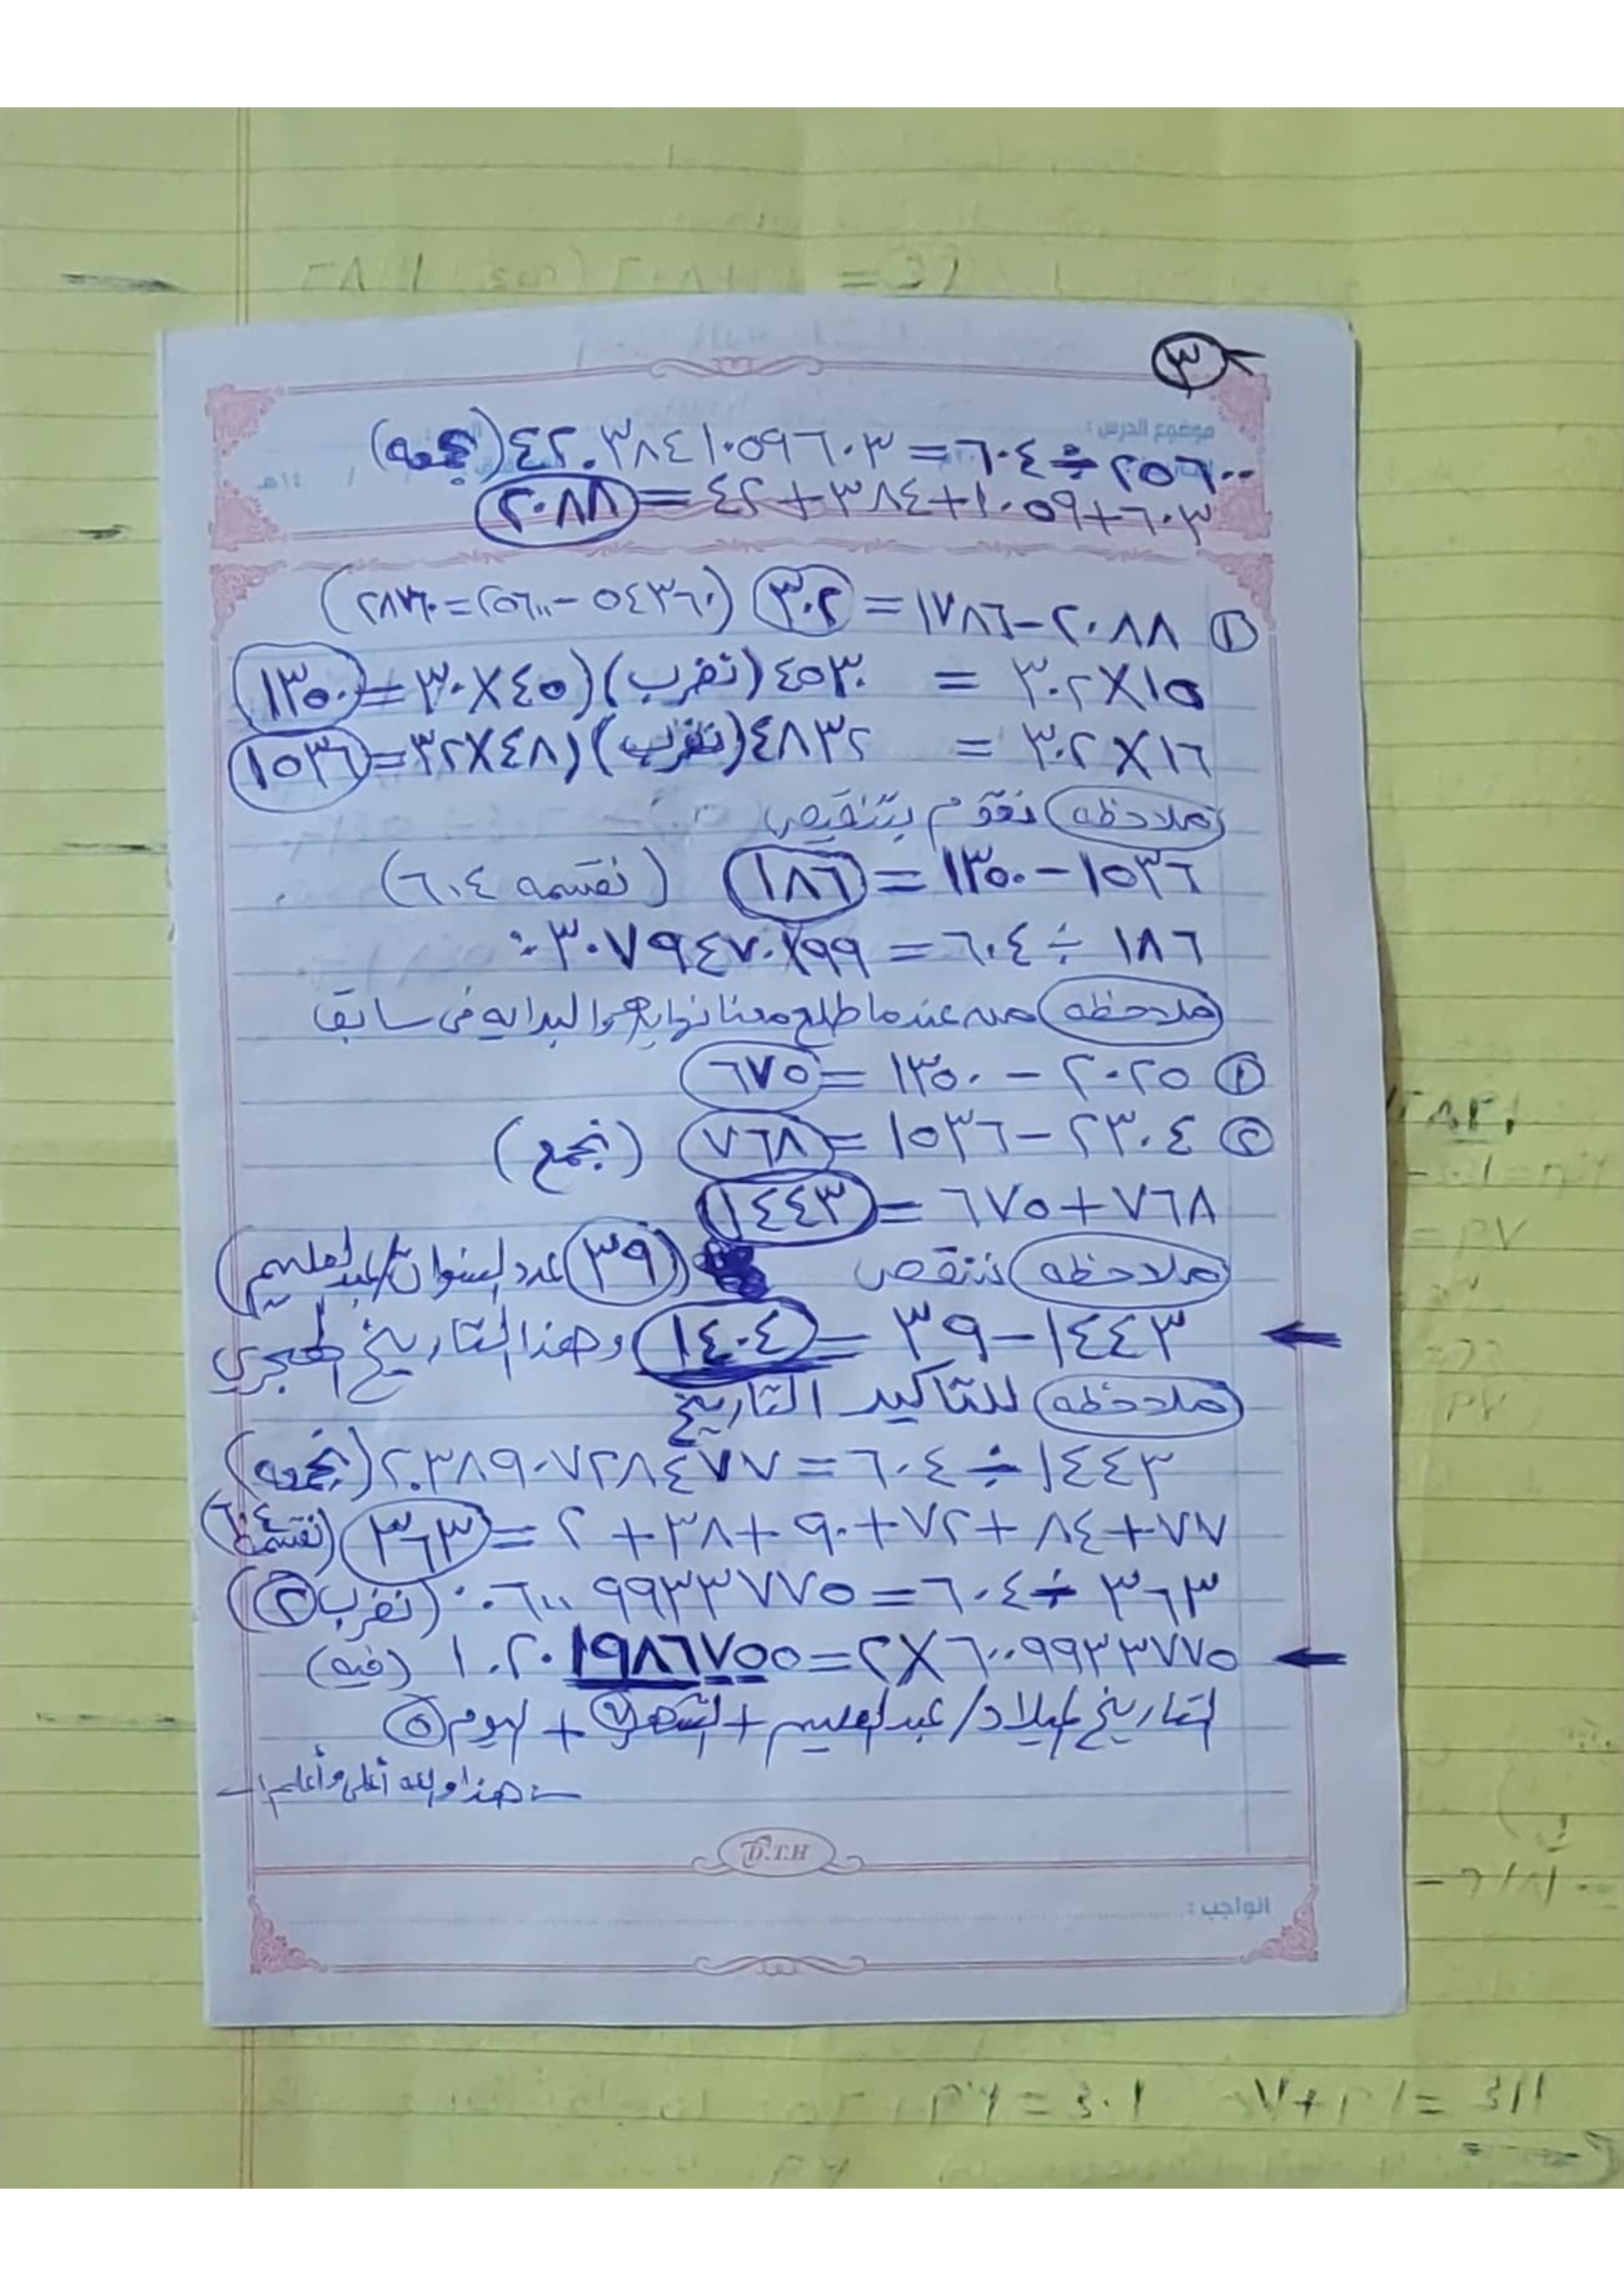 ٣
موضوع الدرس :
٢٥٦٠٠ ÷ ٦٠٤ = ٤٢.٣٨٤١٠٥٩٦٠٣ (نجمعه)
٦٠٣+١٠٥٩+٣٨٤+٤٢ = ٢٠٨٨
① ٢٠٨٨-١٧٨٦ = ٣٠٢ (٥٤٣٦٠-٢٥٦٠٠=٢٨٧٦٠)
٣٠٢X١٥ = ٤٥٣٠ (نضرب) (٤٥X٣٠=١٣٥٠
٣٠٢X١٦ = ٤٨٣٢ (نضرب) (٤٨X٣٢=١٥٣٦
ملاحظه نقوم بتنقيص
١٥٣٦-١٣٥٠ = ١٨٦ (نقسمه ٦٠٤)
١٨٦ ÷ ٦٠٤ = ٠.٣٠٧٩٤٧٠١٩٩
ملاحظه عندما طلع معنا نهايه والبدايه في سابق
① ٢٠٢٥ - ١٣٥٠ = ٦٧٥
② ٢٣٠٤ - ١٥٣٦ = ٧٦٨ (نجمع)
٧٦٨+٦٧٥ = ١٤٤٣
ملاحظه ننقص (٣٩) عدد السنوات/عبدالعليم)
١٤٤٣-٣٩ = ١٤٠٤ وهذا التاريخ الهجري
ملاحظه للتاكيد التاريخ
١٤٤٣ ÷ ٦٠٤ = ٢.٣٨٩٠٧٢٨٤٧٧ (نجمعه)
٧٧+٨٤+٧٢+٩٠+٣٨+٢ = ٣٦٣ (نقسمه ٦٠٤)
٣٦٣ ÷ ٦٠٤ = ٠.٦٠٠٩٩٣٣٧٧٥ (نضرب ②)
٦٠٠٩٩٣٣٧٧٥X٢=١.٢٠١٩٨٦٧٥٥ (فيه)
التاريخ ميلاد/عبدالعليم + الشهر ⑦ + اليوم ⑤
-: هذا والله أعلى وأعلم :-
D.T.H
الواجب :